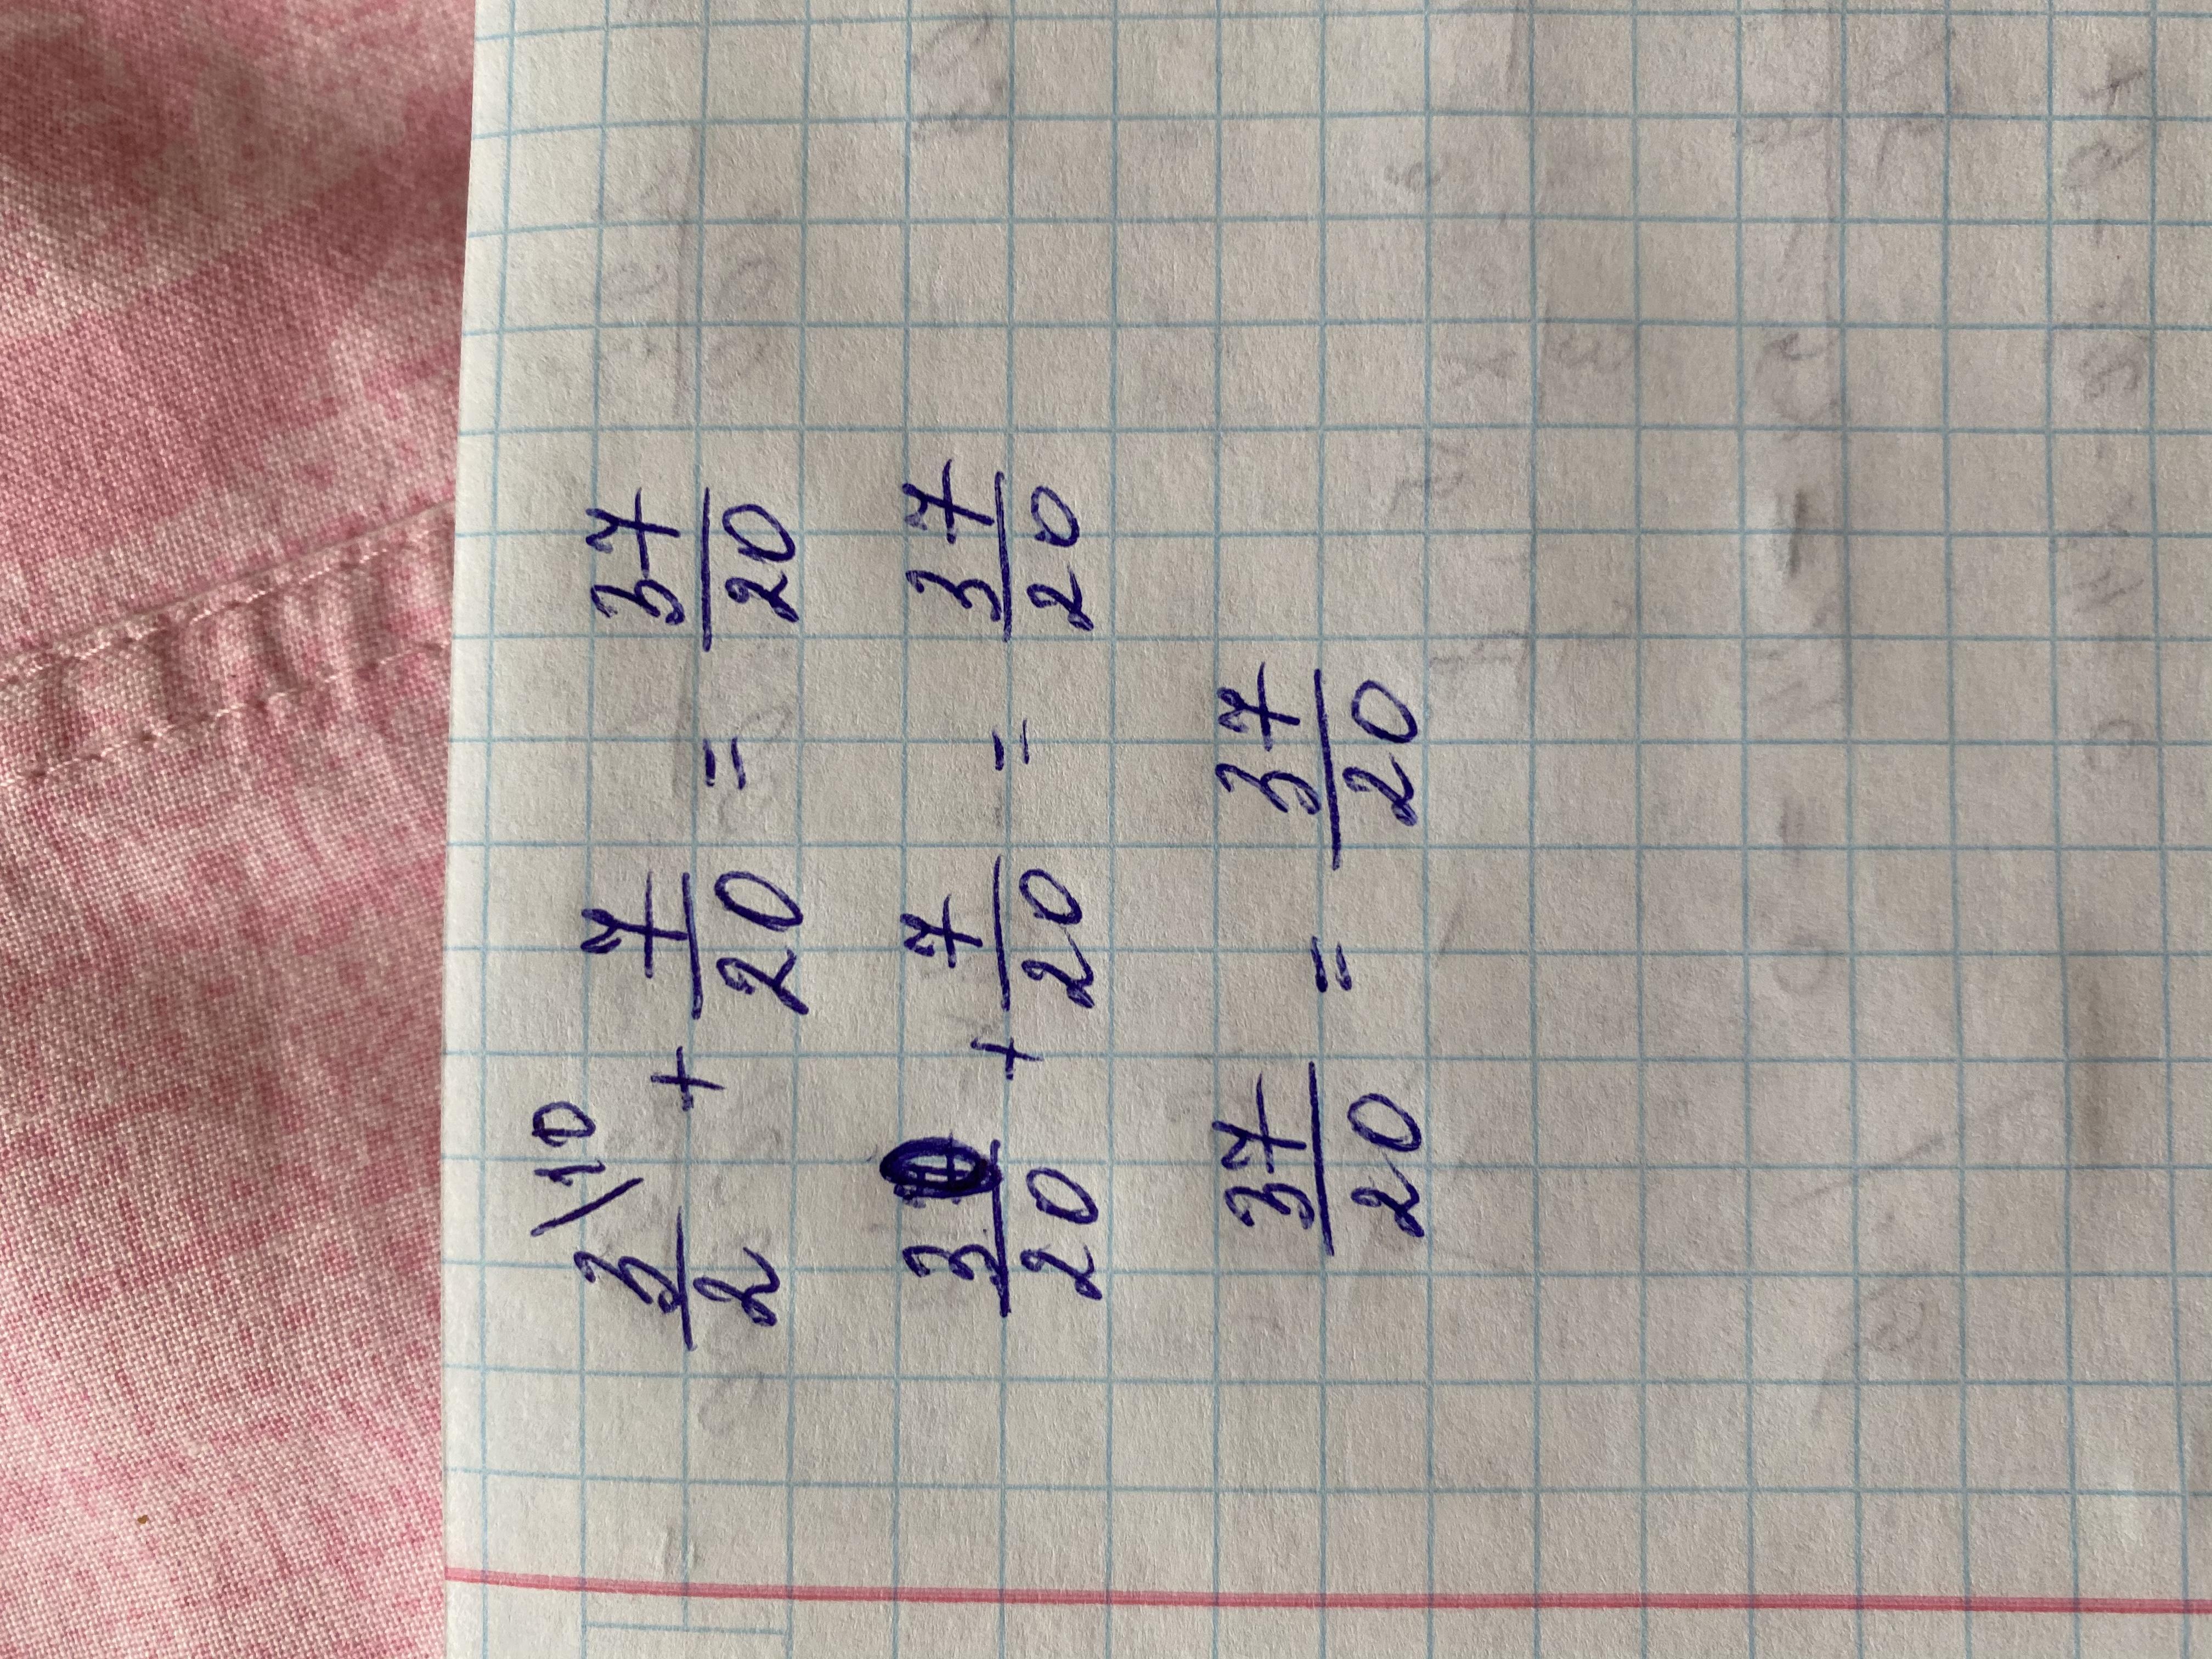 3/2 \10 + 7/20 = 37/20
30/20 + 7/20 = 37/20
37/20 = 37/20